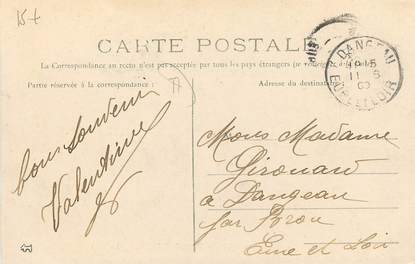 15+
CARTE POSTALE
La Correspondance au recto n'est pas acceptée par tous les pays étrangers
Partie réservée à la correspondance :
Adresse du destinataire
DANGEAU
11 - 5
EURE-ET-LOIR
bons Souvenir
Valentine
Mons Madame
Girouard
à Dangeau
par Brou
Eure et Loir